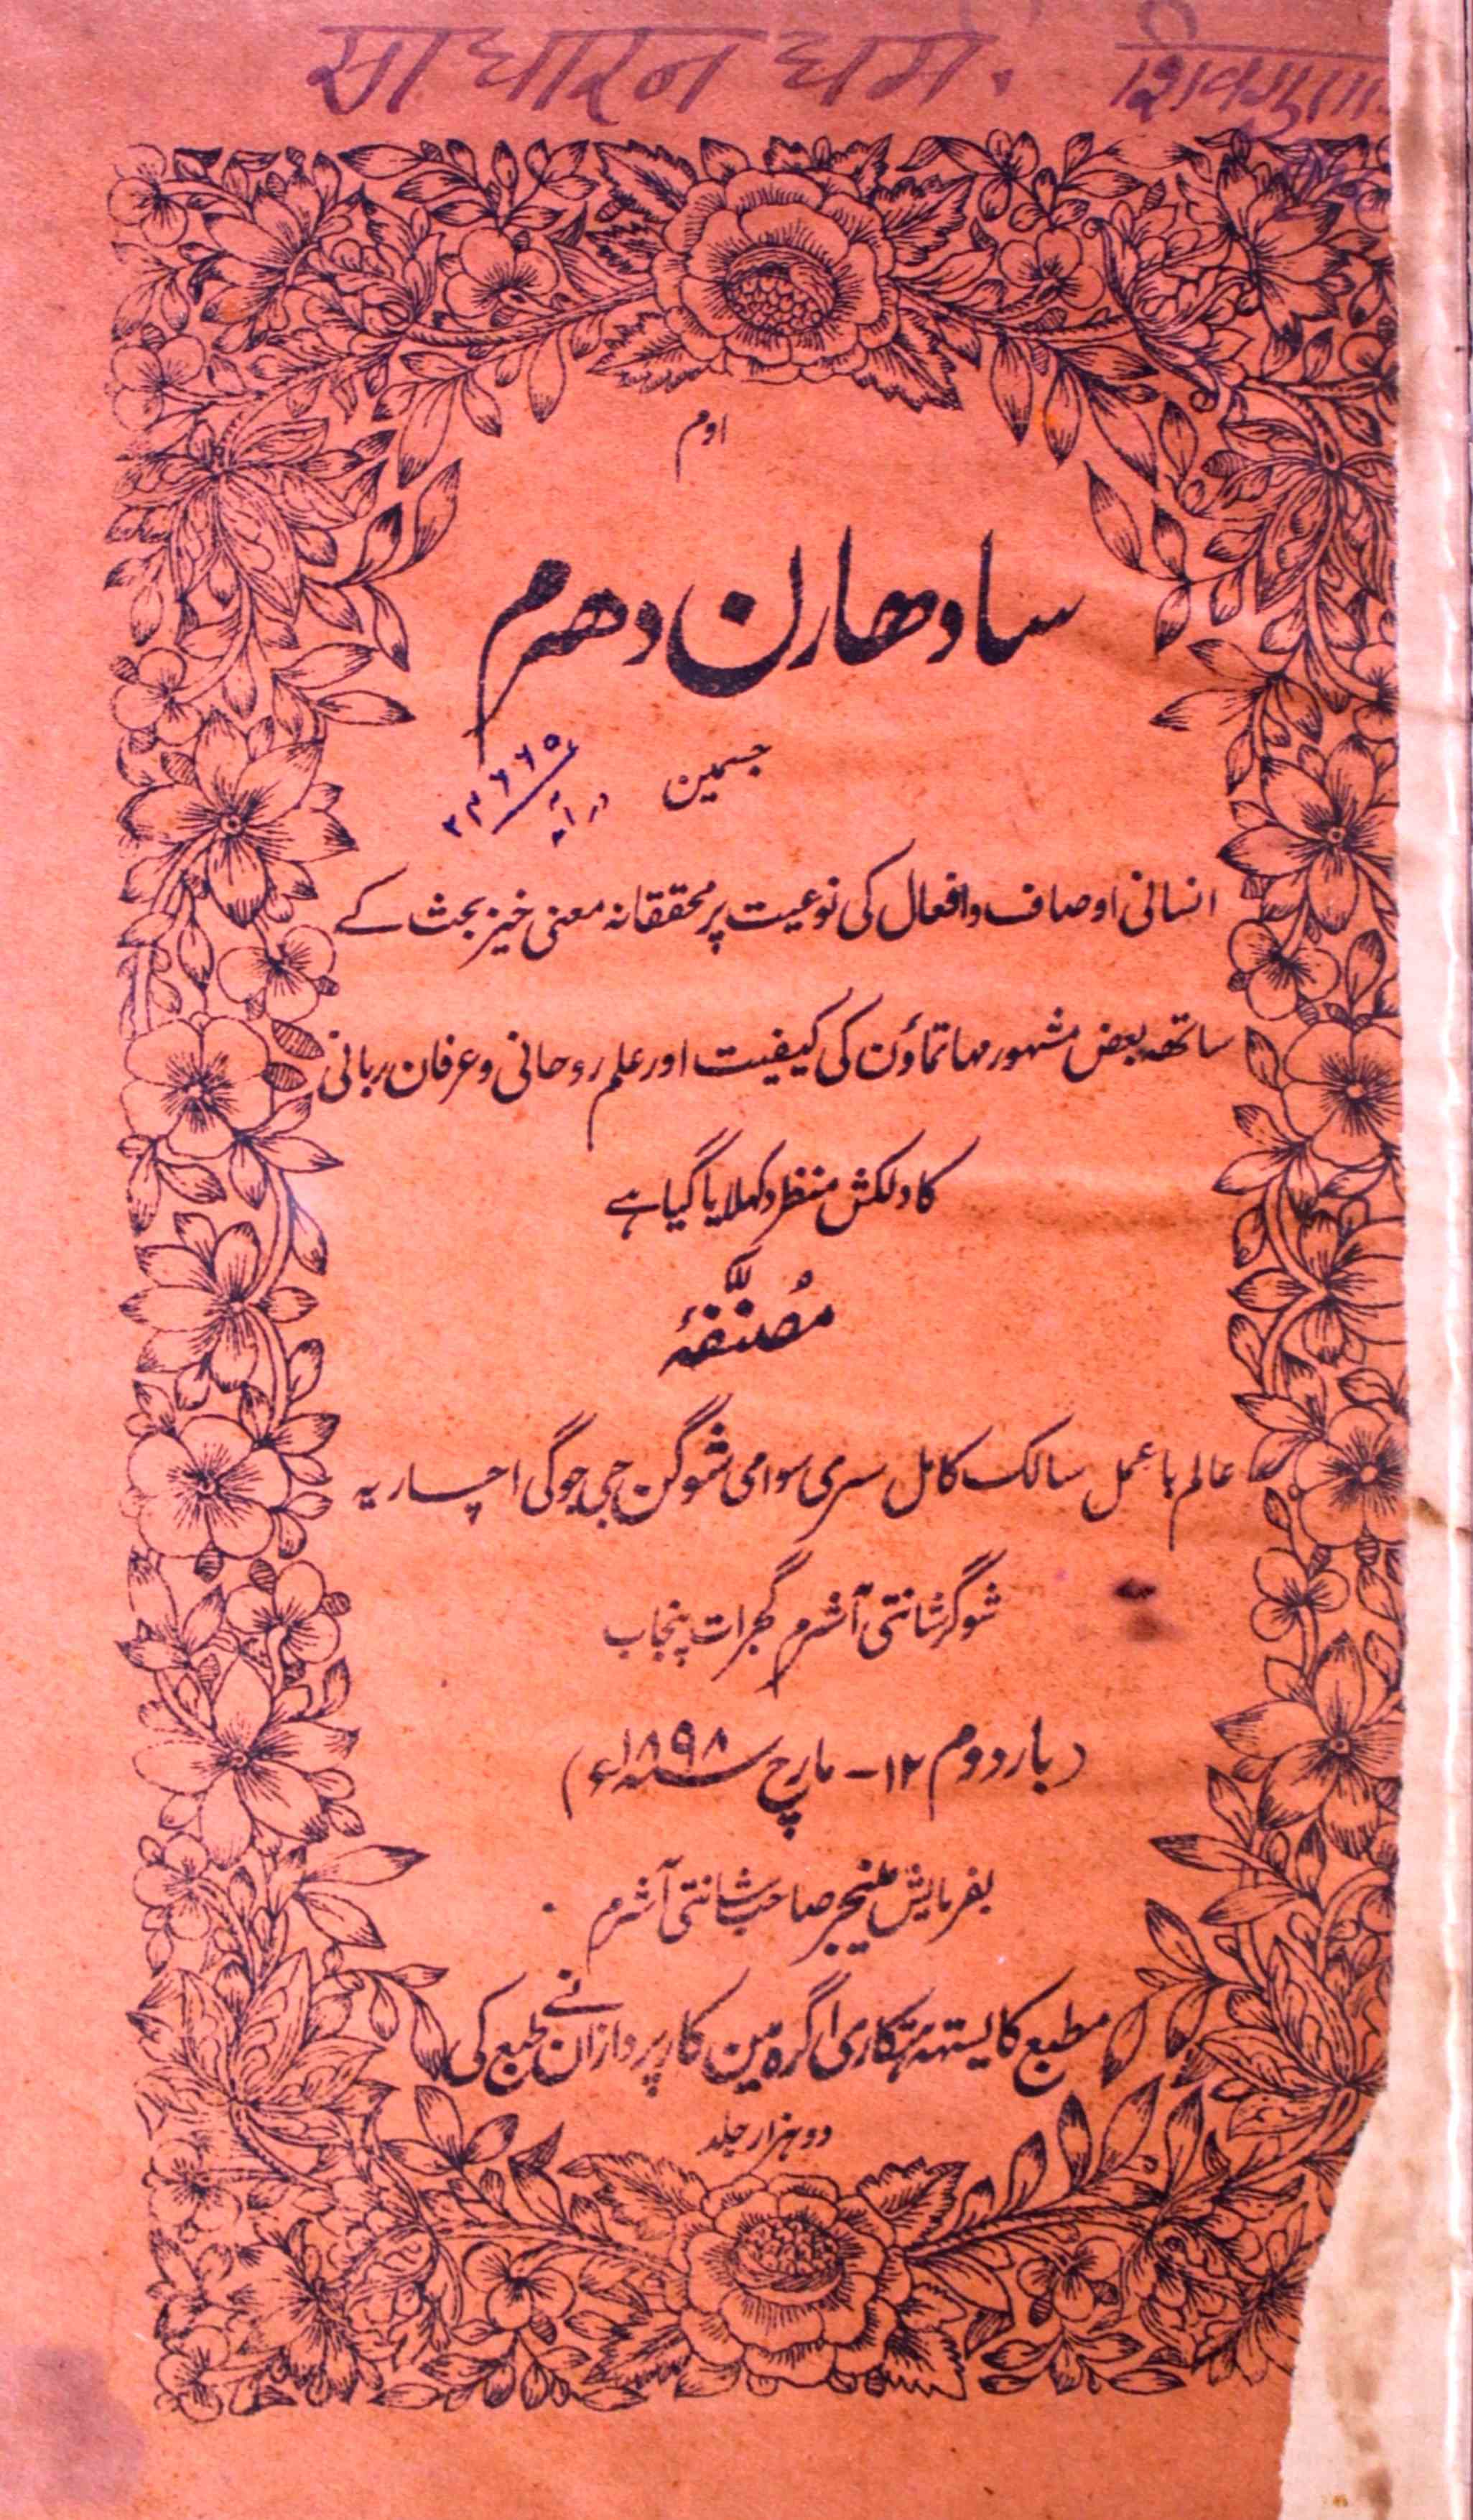 साधारन धर्म. शिवगुण
اوم
سادھارن دھرم
جسمین
انسانی اوصاف وافعال کی نوعیت پر محققانہ معنی خیز بحث کے
ساتھہ بعض مشہور مہاتماؤن کی کیفیت اور علم روحانی و عرفان ربانی
کا دلکش منظر دکہلایا گیا ہے
مُصنّفۂ
عالم باعمل سالک کامل سری سوامی شوگن جی جوگی اچاریہ
شوگر شانتی آشرم گجرات پنجاب
(بار دوم ۱۲- مارچ سنہ ۱۸۹۸ء)
بفرمایش منیجر صاحب شانتی آشرم
مطبع کایستہہ ہتکاری اگرہ مین کارپردازان نے طبع کی
دو ہزار جلد